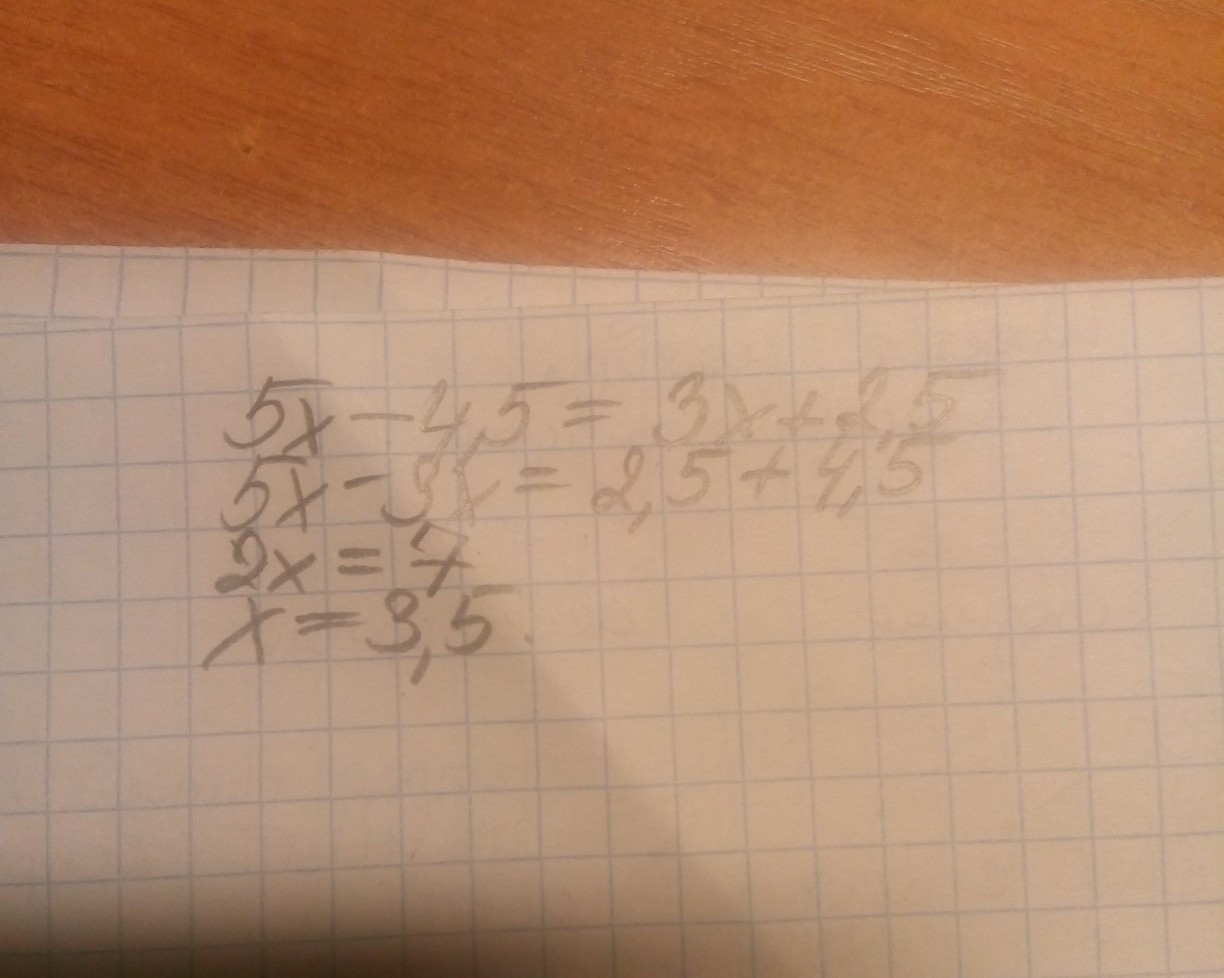 5x - 4,5 = 3x + 2,5
5x - 3x = 2,5 + 4,5
2x = 7
x = 3,5.